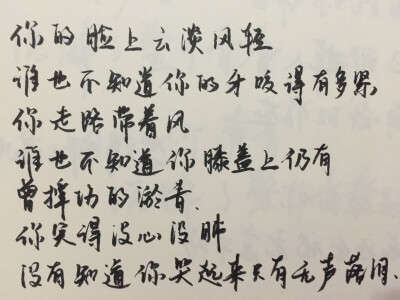 你的脸上云淡风轻
谁也不知道你的牙咬得有多紧,
你走路带着风
谁也不知道你膝盖上仍有
曾摔伤的淤青.
你笑得没心没肺
没有知道你哭起来只有无声落泪.